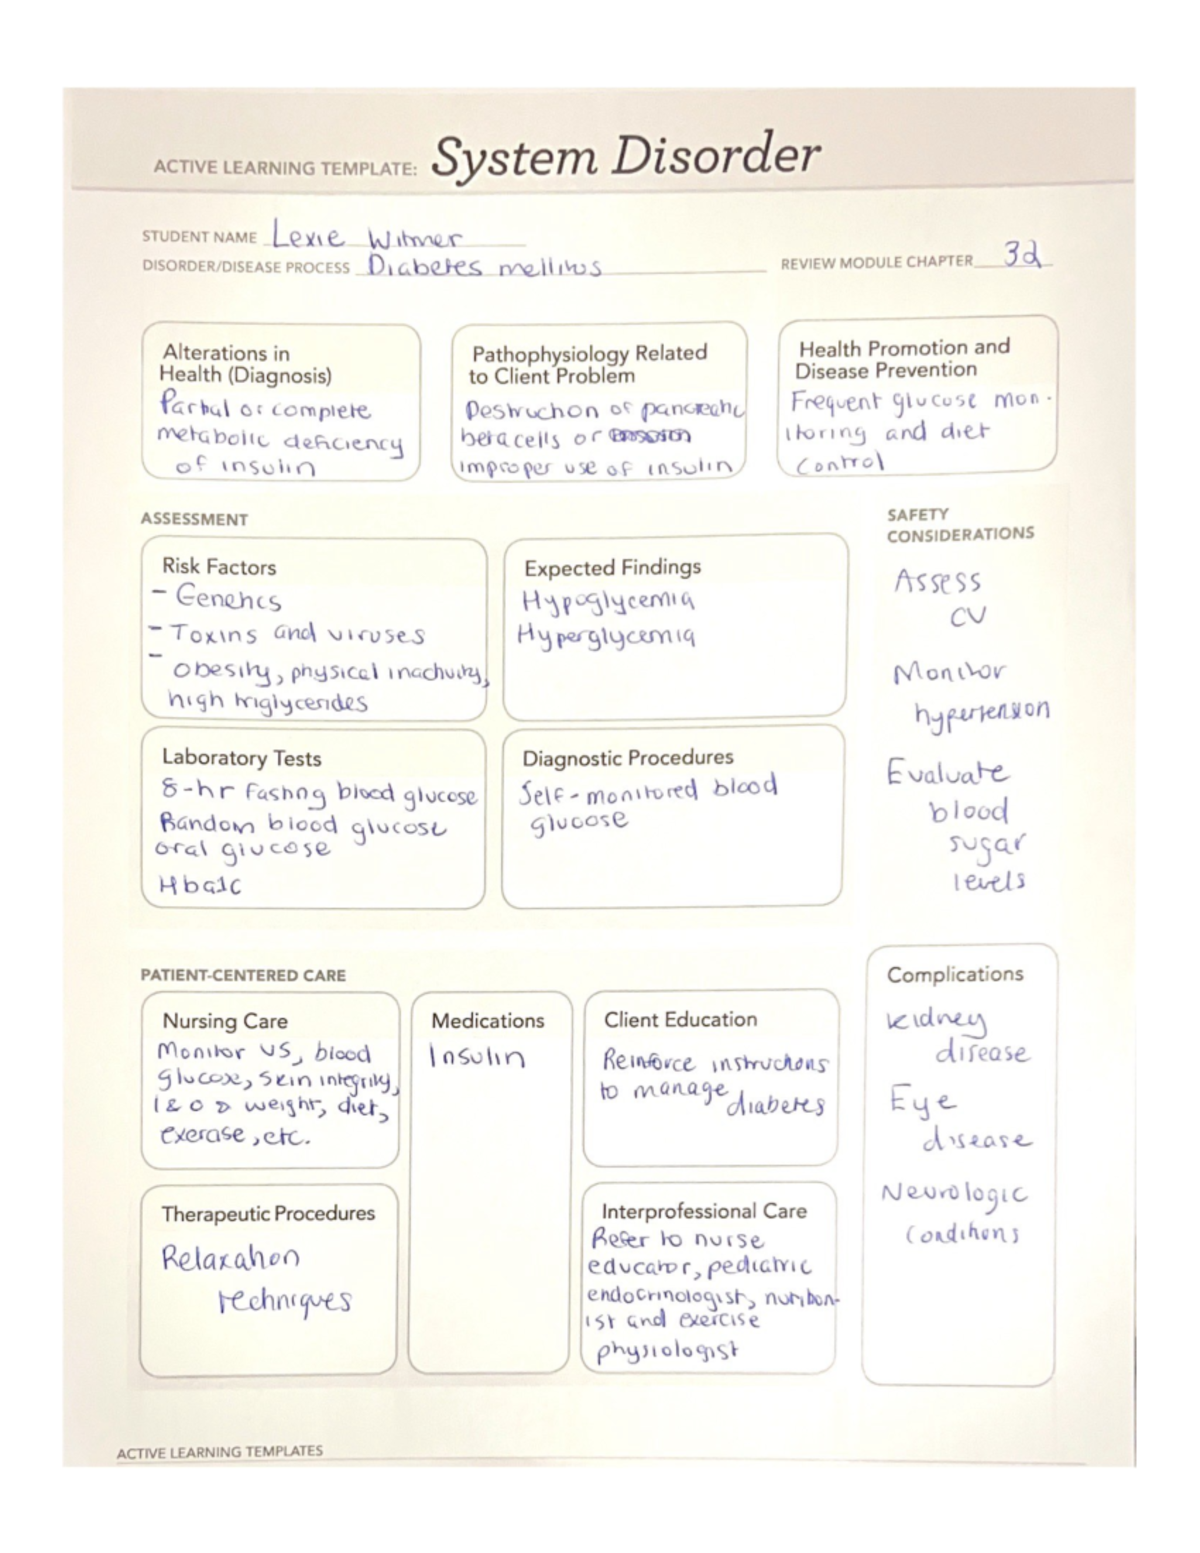 ACTIVE LEARNING TEMPLATE: System Disorder
STUDENT NAME Lexie Witmer
DISORDER/DISEASE PROCESS Diabetes mellitus
REVIEW MODULE CHAPTER 32
Alterations in
Health (Diagnosis)
Partial or complete
metabolic deficiency
of insulin
Pathophysiology Related
to Client Problem
Destruction of pancreatic
beta cells or
improper use of insulin
Health Promotion and
Disease Prevention
Frequent glucose mon-
itoring and diet
control
ASSESSMENT
Risk Factors
- Genetics
- Toxins and viruses
- Obesity, physical inactivity,
high triglycerides
Expected Findings
Hypoglycemia
Hyperglycemia
Laboratory Tests
8-hr fasting blood glucose
Random blood glucose
oral glucose
Hba1c
Diagnostic Procedures
Self-monitored blood
glucose
SAFETY
CONSIDERATIONS
Assess
CV
Monitor
hypertension
Evaluate
blood
sugar
levels
PATIENT-CENTERED CARE
Nursing Care
Monitor VS, blood
glucose, skin integrity,
I & O weight, diet,
exercise, etc.
Medications
Insulin
Client Education
Reinforce instructions
to manage
diabetes
Therapeutic Procedures
Relaxation
techniques
Interprofessional Care
Refer to nurse
educator, pediatric
endocrinologist, nutrition-
ist and exercise
physiologist
Complications
Kidney
disease
Eye
disease
Neurologic
Conditions
ACTIVE LEARNING TEMPLATES